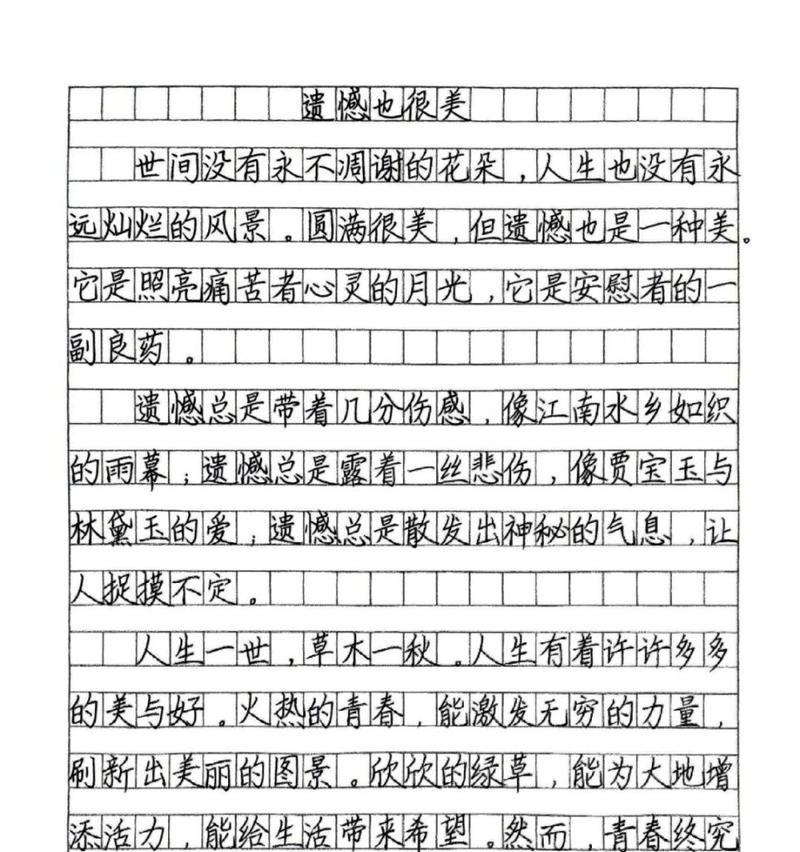 遗憾也很美
世间没有永不凋谢的花朵，人生也没有永
远灿烂的风景。圆满很美，但遗憾也是一种美。
它是照亮痛苦者心灵的月光，它是安慰者的一
副良药。
遗憾总是带着几分伤感，像江南水乡如织
的雨幕；遗憾总是露着一丝悲伤，像贾宝玉与
林黛玉的爱；遗憾总是散发出神秘的气息，让
人捉摸不定。
人生一世，草木一秋。人生有着许许多多
的美与好。火热的青春，能激发无穷的力量，
刷新出美丽的图景。欣欣的绿草，能为大地增
添活力，能给生活带来希望。然而，青春终究